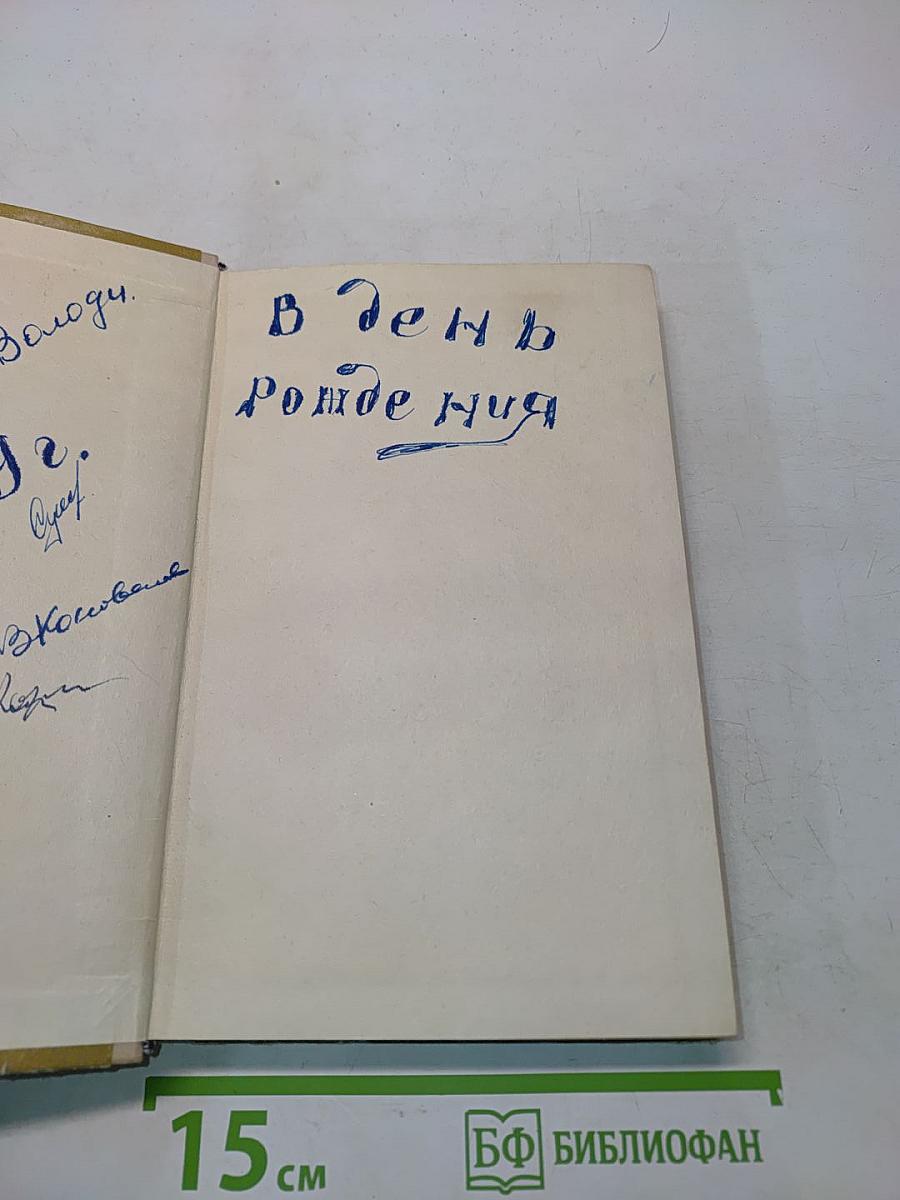 Володи.
г.
В день
рождения
15 см
БФ БИБЛИОФАН